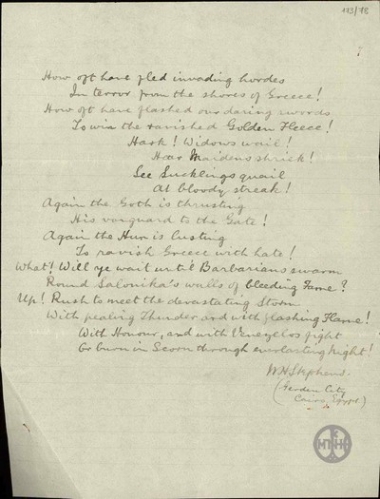 113/78
How oft have fled invading hordes
In terror from the shores of Greece!
How oft have flashed our daring swords
To win the ravished Golden Fleece!
Hark! Widows wail!
Hear Maidens shriek!
See Sucklings quail
At bloody streak!
Again the Goth is thrusting
His vanguard to the Gate!
Again the Hun is lusting
To ravish Greece with hate!
What! Will ye wait until Barbarians swarm
Round Salonika's walls of bleeding Fame?
Up! Rush to meet the devastating Storm
With pealing Thunder and with flashing Flame!
With Honour, and with Venezelos fight
Or burn in Scorn through everlasting Night!
W. H. Stephens.
(Garden City
Cairo, Egypt)